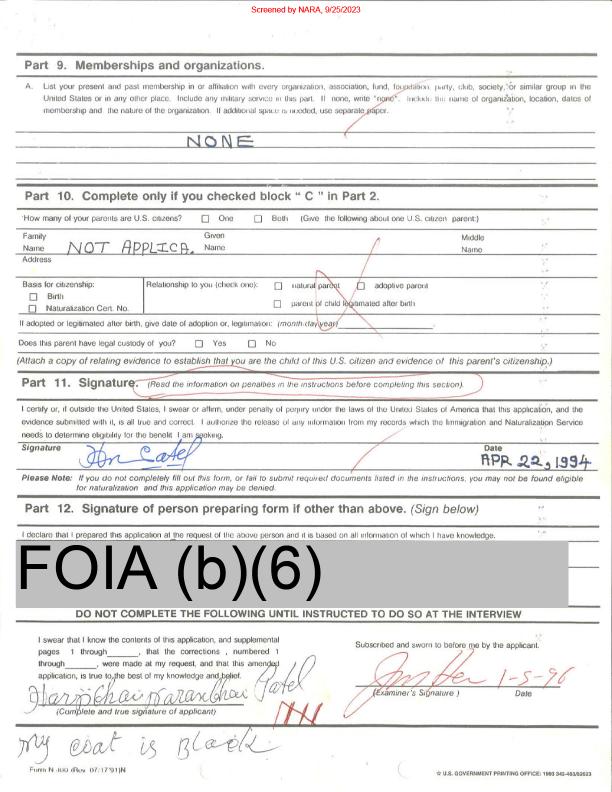 Screened by NARA, 9/25/2023
Part 9. Memberships and organizations.
A. List your present and past membership in or affiliation with every organization, association, fund, foundation, party, club, society, or similar group in the
United States or in any other place. Include any military service in this part. If none, write "none". Include the name of organization, location, dates of
membership and the nature of the organization. If additional space is needed, use separate paper.
NONE
Part 10. Complete only if you checked block " C " in Part 2.
How many of your parents are U.S. citizens? One Both (Give the following about one U.S. citizen parent:)
Family Given Middle
Name NOT APPLICA. Name Name
Address
Basis for citizenship: Relationship to you (check one): natural parent adoptive parent
Birth
Naturalization Cert. No. parent of child legitimated after birth
If adopted or legitimated after birth, give date of adoption or, legitimation: (month/day/year)
Does this parent have legal custody of you? Yes No
(Attach a copy of relating evidence to establish that you are the child of this U.S. citizen and evidence of this parent's citizenship.)
Part 11. Signature. (Read the information on penalties in the instructions before completing this section).
I certify or, if outside the United States, I swear or affirm, under penalty of perjury under the laws of the United States of America that this application, and the
evidence submitted with it, is all true and correct. I authorize the release of any information from my records which the Immigration and Naturalization Service
needs to determine eligibility for the benefit I am seeking.
Signature Date
APR 22, 1994
Please Note: If you do not completely fill out this form, or fail to submit required documents listed in the instructions, you may not be found eligible
for naturalization and this application may be denied.
Part 12. Signature of person preparing form if other than above. (Sign below)
I declare that I prepared this application at the request of the above person and it is based on all information of which I have knowledge.
FOIA (b)(6)
DO NOT COMPLETE THE FOLLOWING UNTIL INSTRUCTED TO DO SO AT THE INTERVIEW
I swear that I know the contents of this application, and supplemental
pages 1 through_____, that the corrections , numbered 1
through_____, were made at my request, and that this amended
application, is true to the best of my knowledge and belief.
Subscribed and sworn to before me by the applicant.
Patel
1-5-96
(Complete and true signature of applicant)
(Examiner's Signature ) Date
My coat is Black
Form N-400 (Rev. 07/17/91)N
☆ U.S. GOVERNMENT PRINTING OFFICE: 1993 342-483/82623